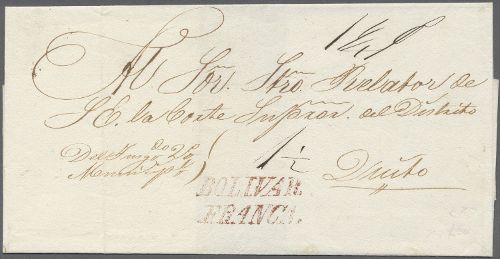 Al Sor. Stro. Relator de
S E. la Corte Supror. del Distrito
Del Juzgdo 2o
Municipl
1 ½
Quito
BOLIVAR
FRANCA.